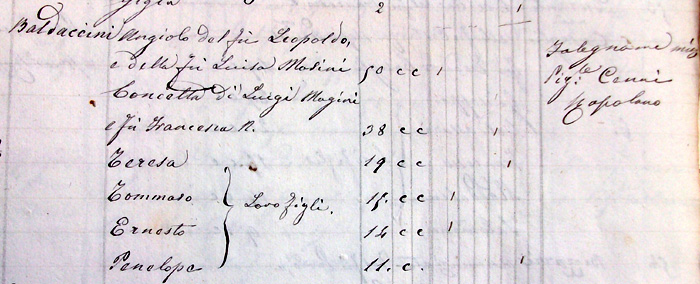 Giglia 2 1
Baldaccini Angiolo del fù Leopoldo,
e della fù Luisa Masini 50 c c 1
Concetta di Luigi Magini
e fù Francesca N. 38 c c 1
Teresa 19 c c 1
Tommaso 15. c c 1
Loro figli.
Ernesto 14 c c 1
Penelope 11. c. 1
Falegname
Pig.le Cenni